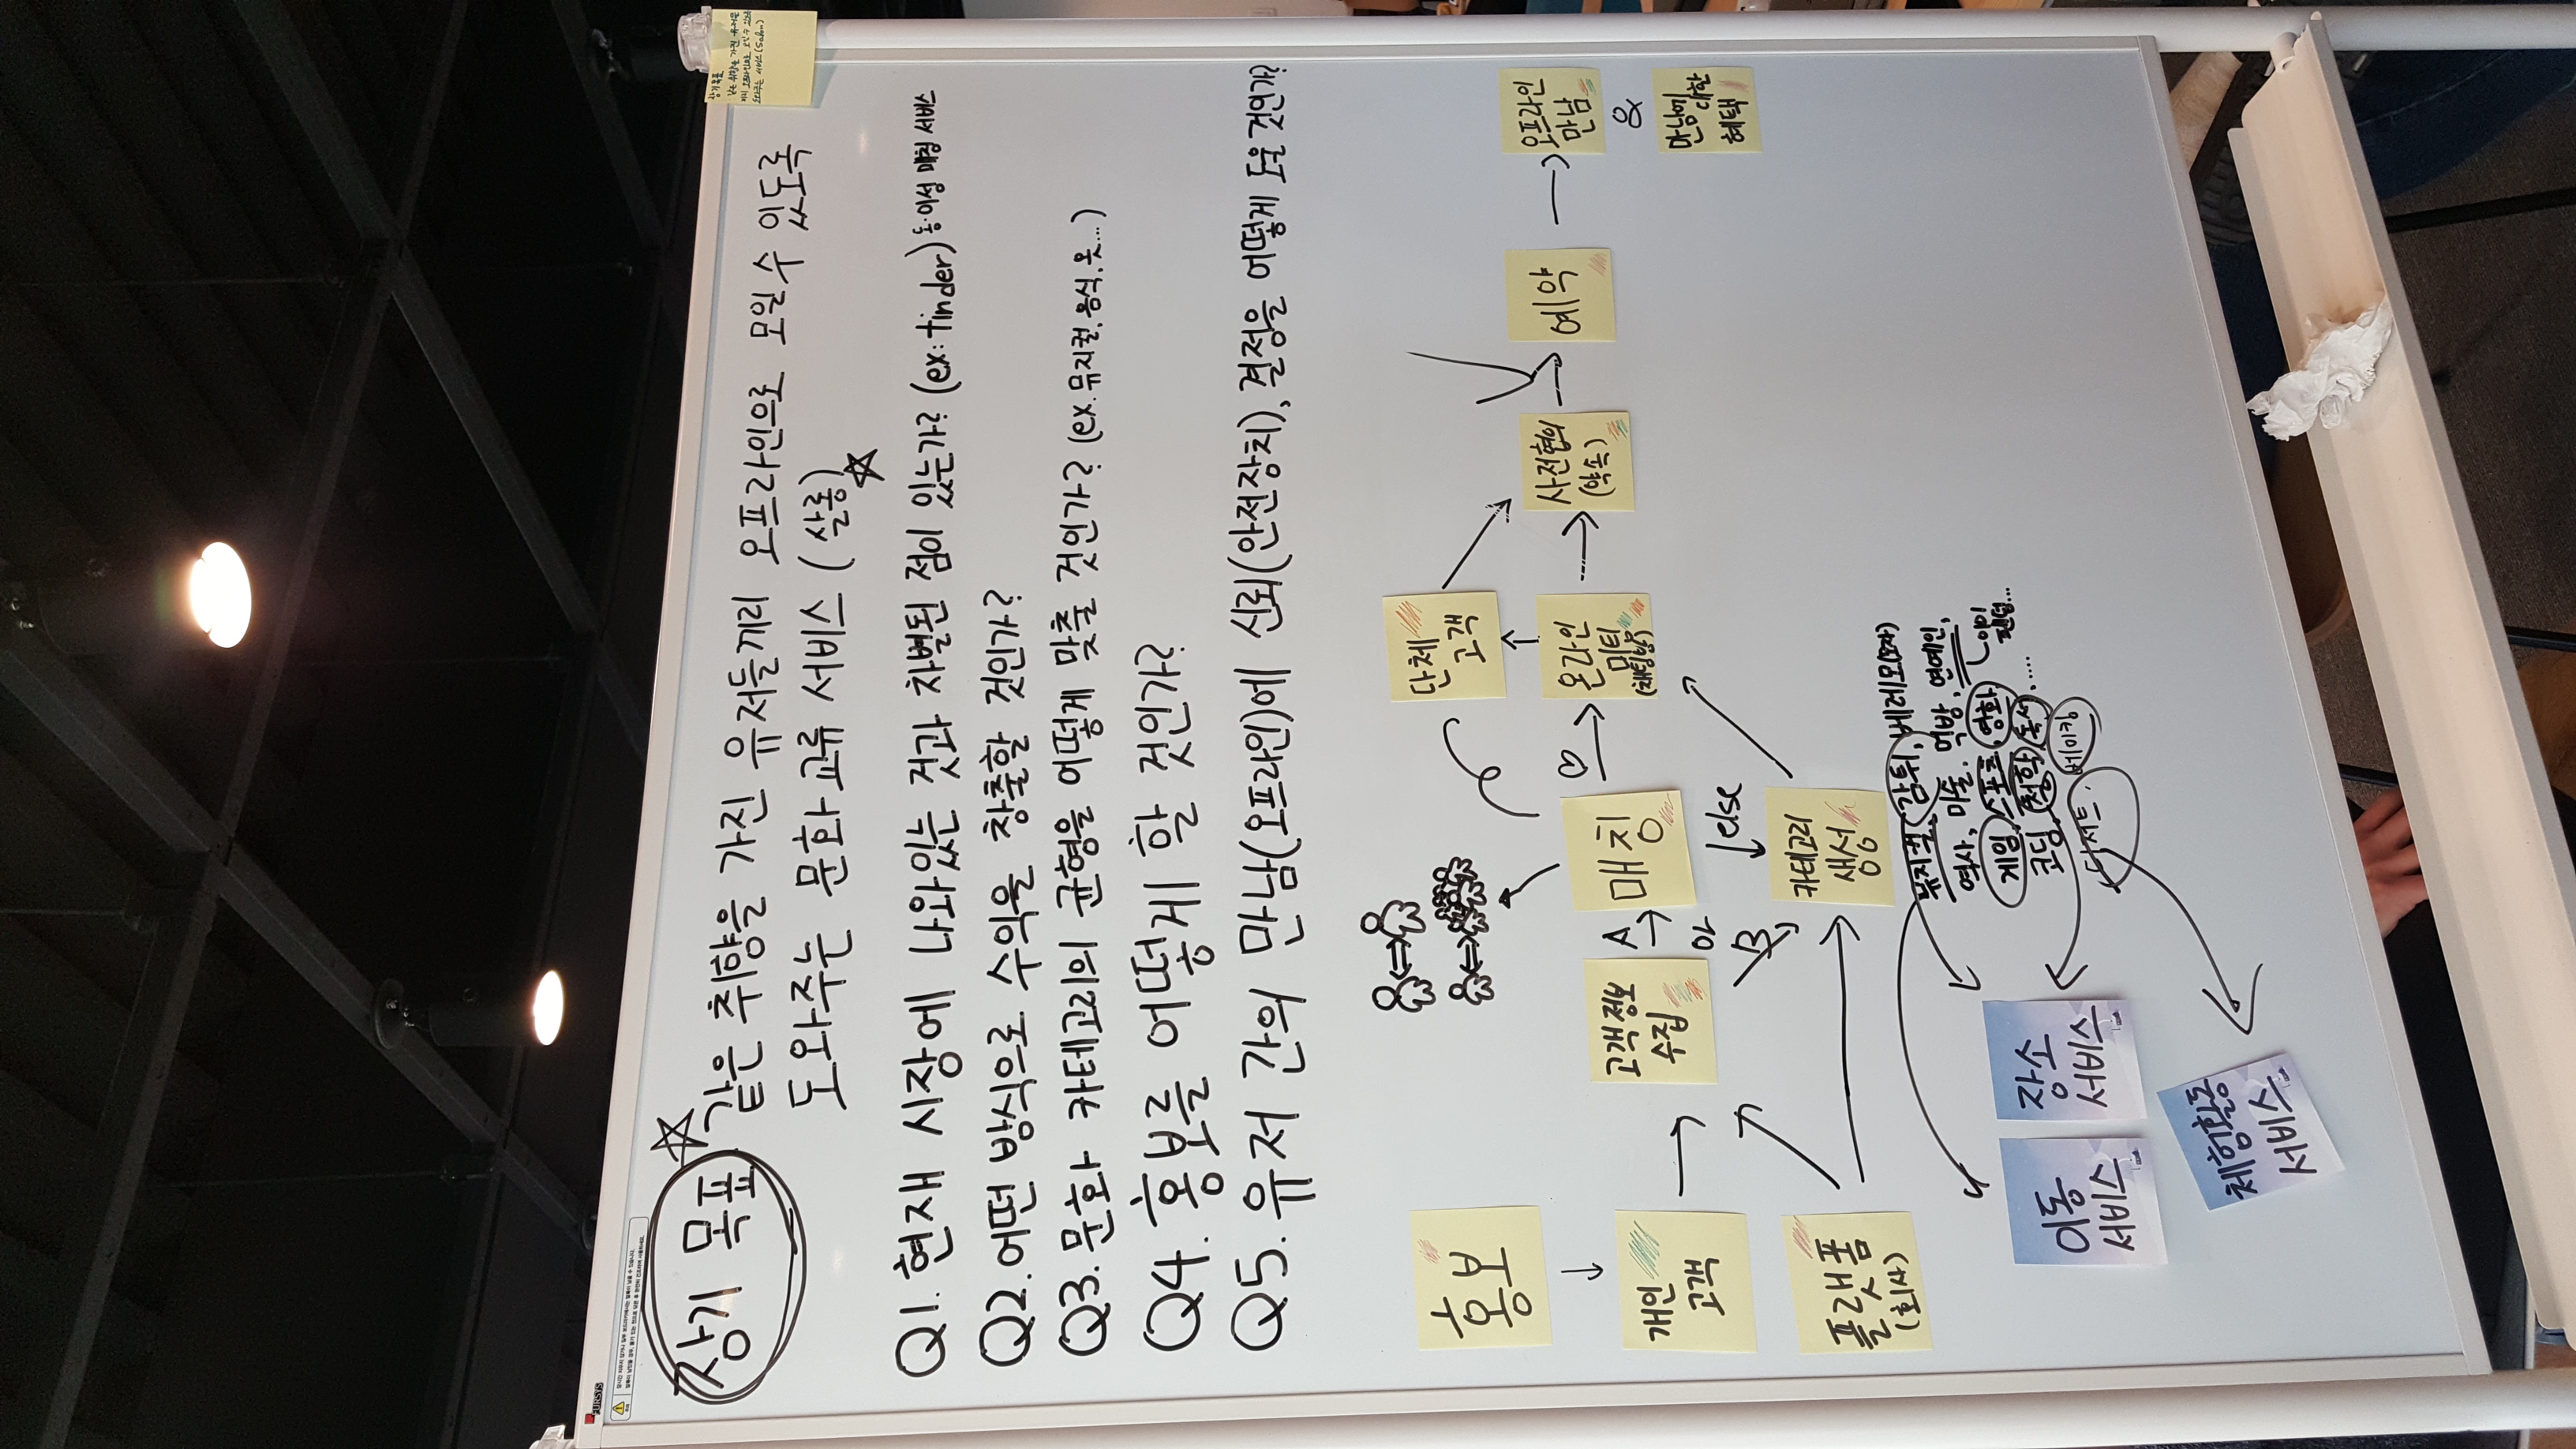 FURSYS
장기 목표
같은 취향을 가진 유저들끼리 오프라인으로 모일 수 있도록
도와주는 문화 교류 서비스 (살롱)
장기목표
같은 취향을 가진 유저들
끼리 오프라인으로 모일 수 있도록
도와주는 서비스 (Salon)
Q1. 현재 시장에 나와있는 것과 차별된 점이 있는가? (ex: tinder) 동·이성 매칭 서비스
Q2. 어떤 방식으로 수익을 창출할 것인가?
Q3. 문화 카테고리의 균형을 어떻게 맞출 것인가? (ex. 뮤지컬, 음식, 옷...)
Q4. 홍보를 어떻게 할 것인가?
Q5. 유저 간의 만남(오프라인)에 신뢰(안전장치), 결정을 어떻게 도울 것인가?
홍보
개인
고객
플랫폼
(회사)
고객정보
수집
A
or
B
매칭
else
카테고리
생성
단체
고객
온라인
미팅
(채팅방)
사전협의
(약속)
예약
오프라인
만남
&
만남에
대한
혜택
뮤지컬, 감튀, 베레모(모자)
역사, 미술, 먹방, 연예인,
게임, 스포츠, 영화,
덴덤...
코딩, 철학, 독서, ....
디저트, 베이킹
이동
서비스
장소
서비스
체험활동
서비스